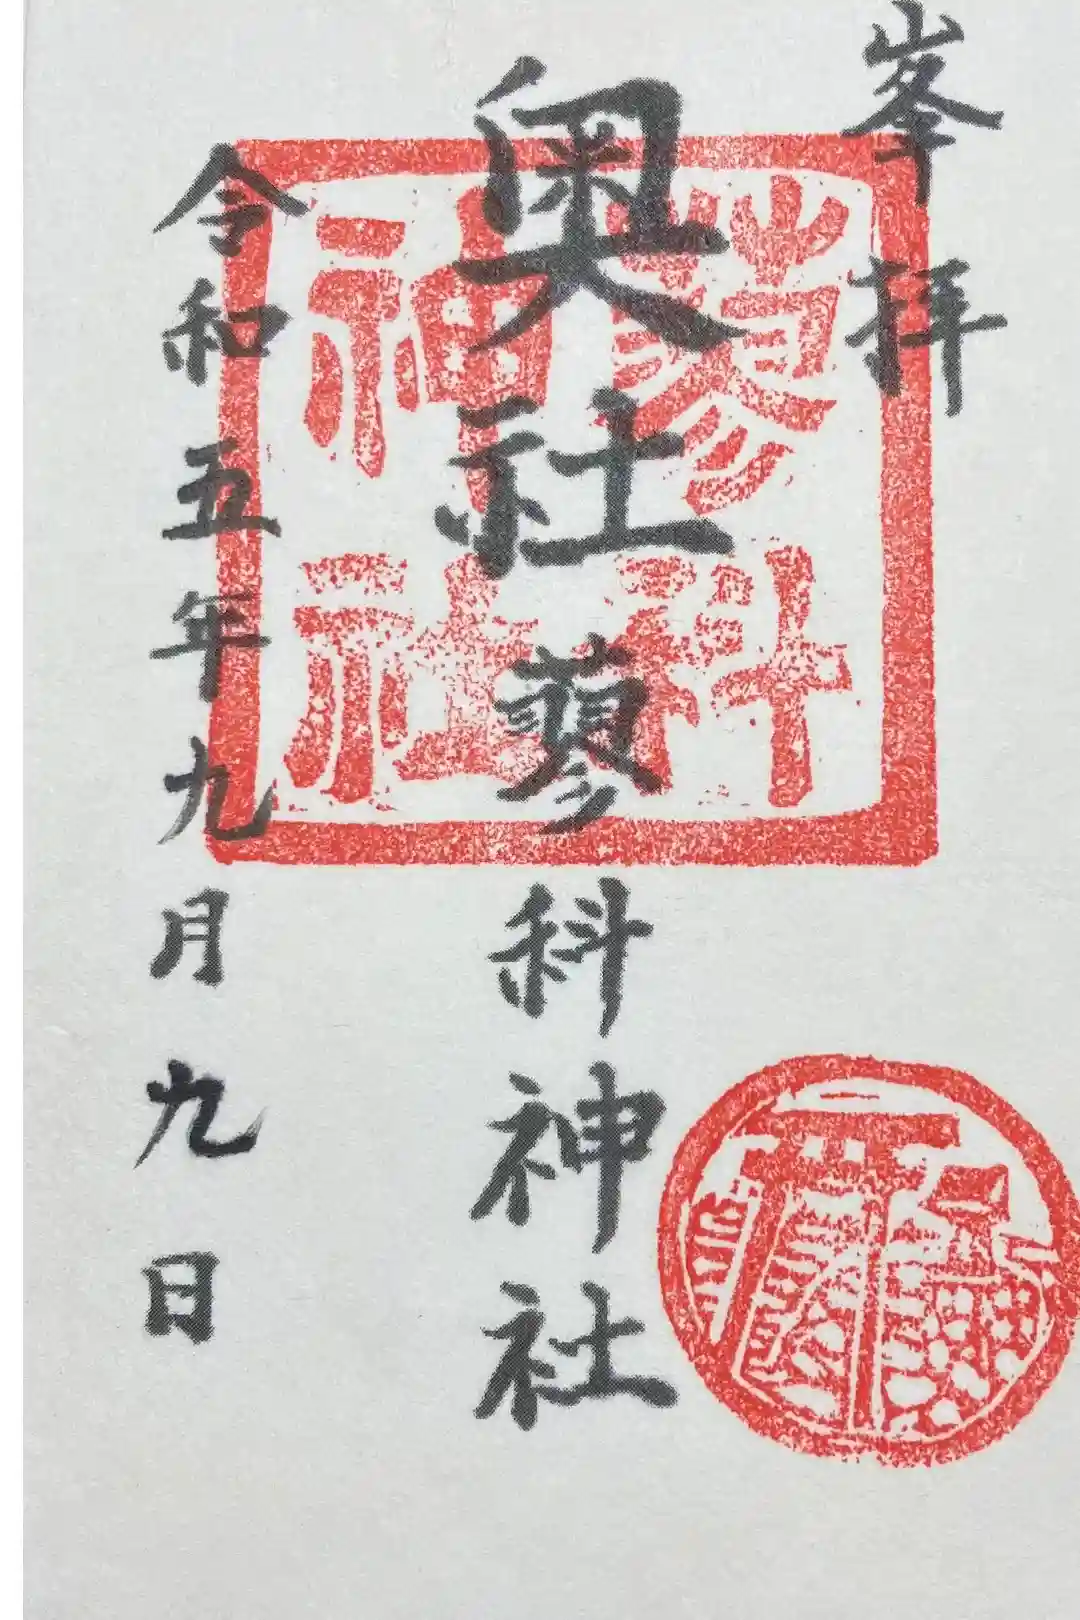 峯拝
奥社蓼科神社
令和五年九月九日
蓼科
神社